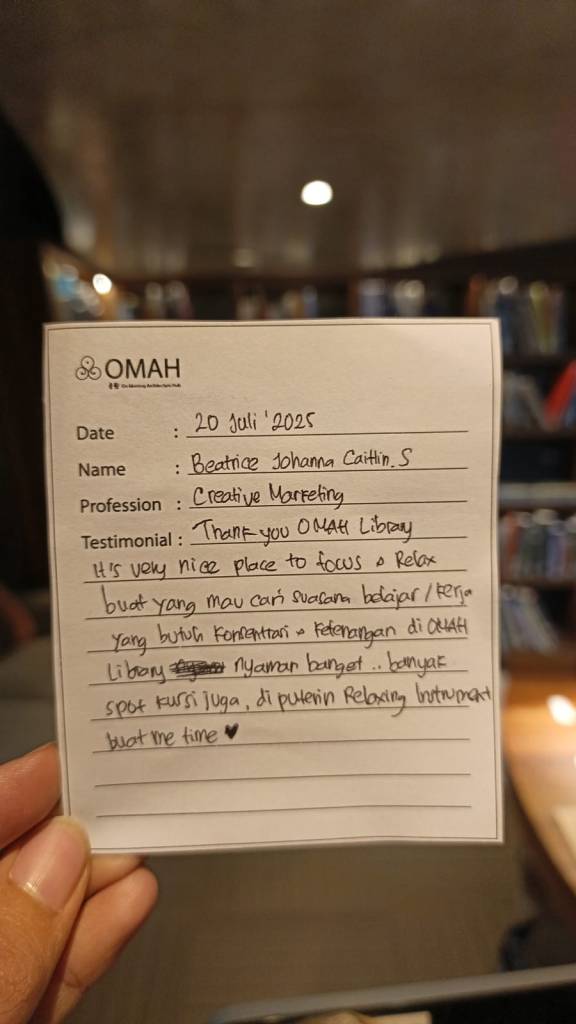 OMAH
Date : 20 Juli '2025
Name : Beatrice Johanna Caitlin. S
Profession : Creative Marketing
Testimonial : Thank you OMAH Library
It's very nice place to focus & Relax
buat yang mau cari suasana belajar / kerja
yang butuh konsentrasi & ketenangan di OMAH
Library nyaman banget .. banyak
spot kursi juga, di puterin Relaxing Instrument
buat me time ♥